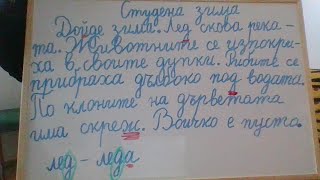 Студена зима
Дойде зима. Лед скова река-
та. Животните се изпокри-
ха в своите дупки. Рибите се
прибраха дълбоко под водата.
По клоните на дърветата
има скреж. Всичко е пусто.
лед - леда